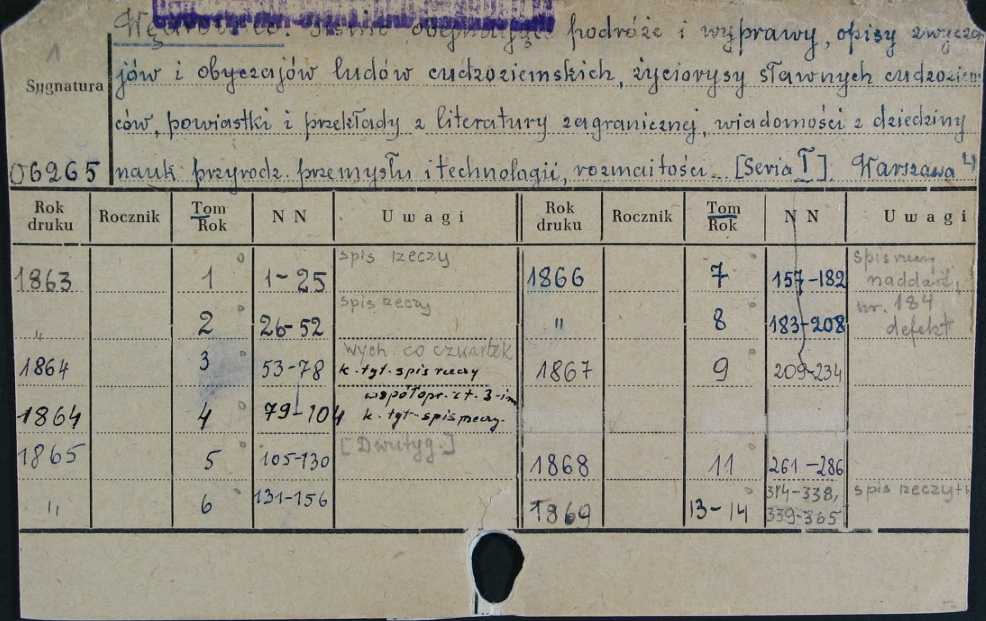 Wędrowiec. Pismo obejmujące podróże i wyprawy, opisy zwycza
1
jów i obyczajów ludów cudzoziemskich, życiorysy sławnych cudzoziem
Sygnatura
ców, powiastki i przekłady z literatury zagranicznej, wiadomości z dziedziny
06265 nauk przyrodz. przemysłu i technologii, rozmaitości. [Seria I]. Warszawa 4)
Rok druku Rocznik Tom Rok N N Uwagi Rok druku Rocznik Tom Rok N N Uwagi
1863 1 1-25 spis rzeczy 1866 7 157-182 spis rzeczy
" 2 26-52 spis rzeczy " 8 183-208 nr. 184 defekt
1864 3 53-78 wych. co czwartek k. tyt. spis rzeczy 1867 9 209-234
współopr. z t. 3-im
1864 4 79-104 k. tyt. spis rzeczy.
1865 5 105-130 [Dwutyg.] 1868 11 261-286
" 6 131-156 1869 13-14 314-338, 339-365 spis rzeczy